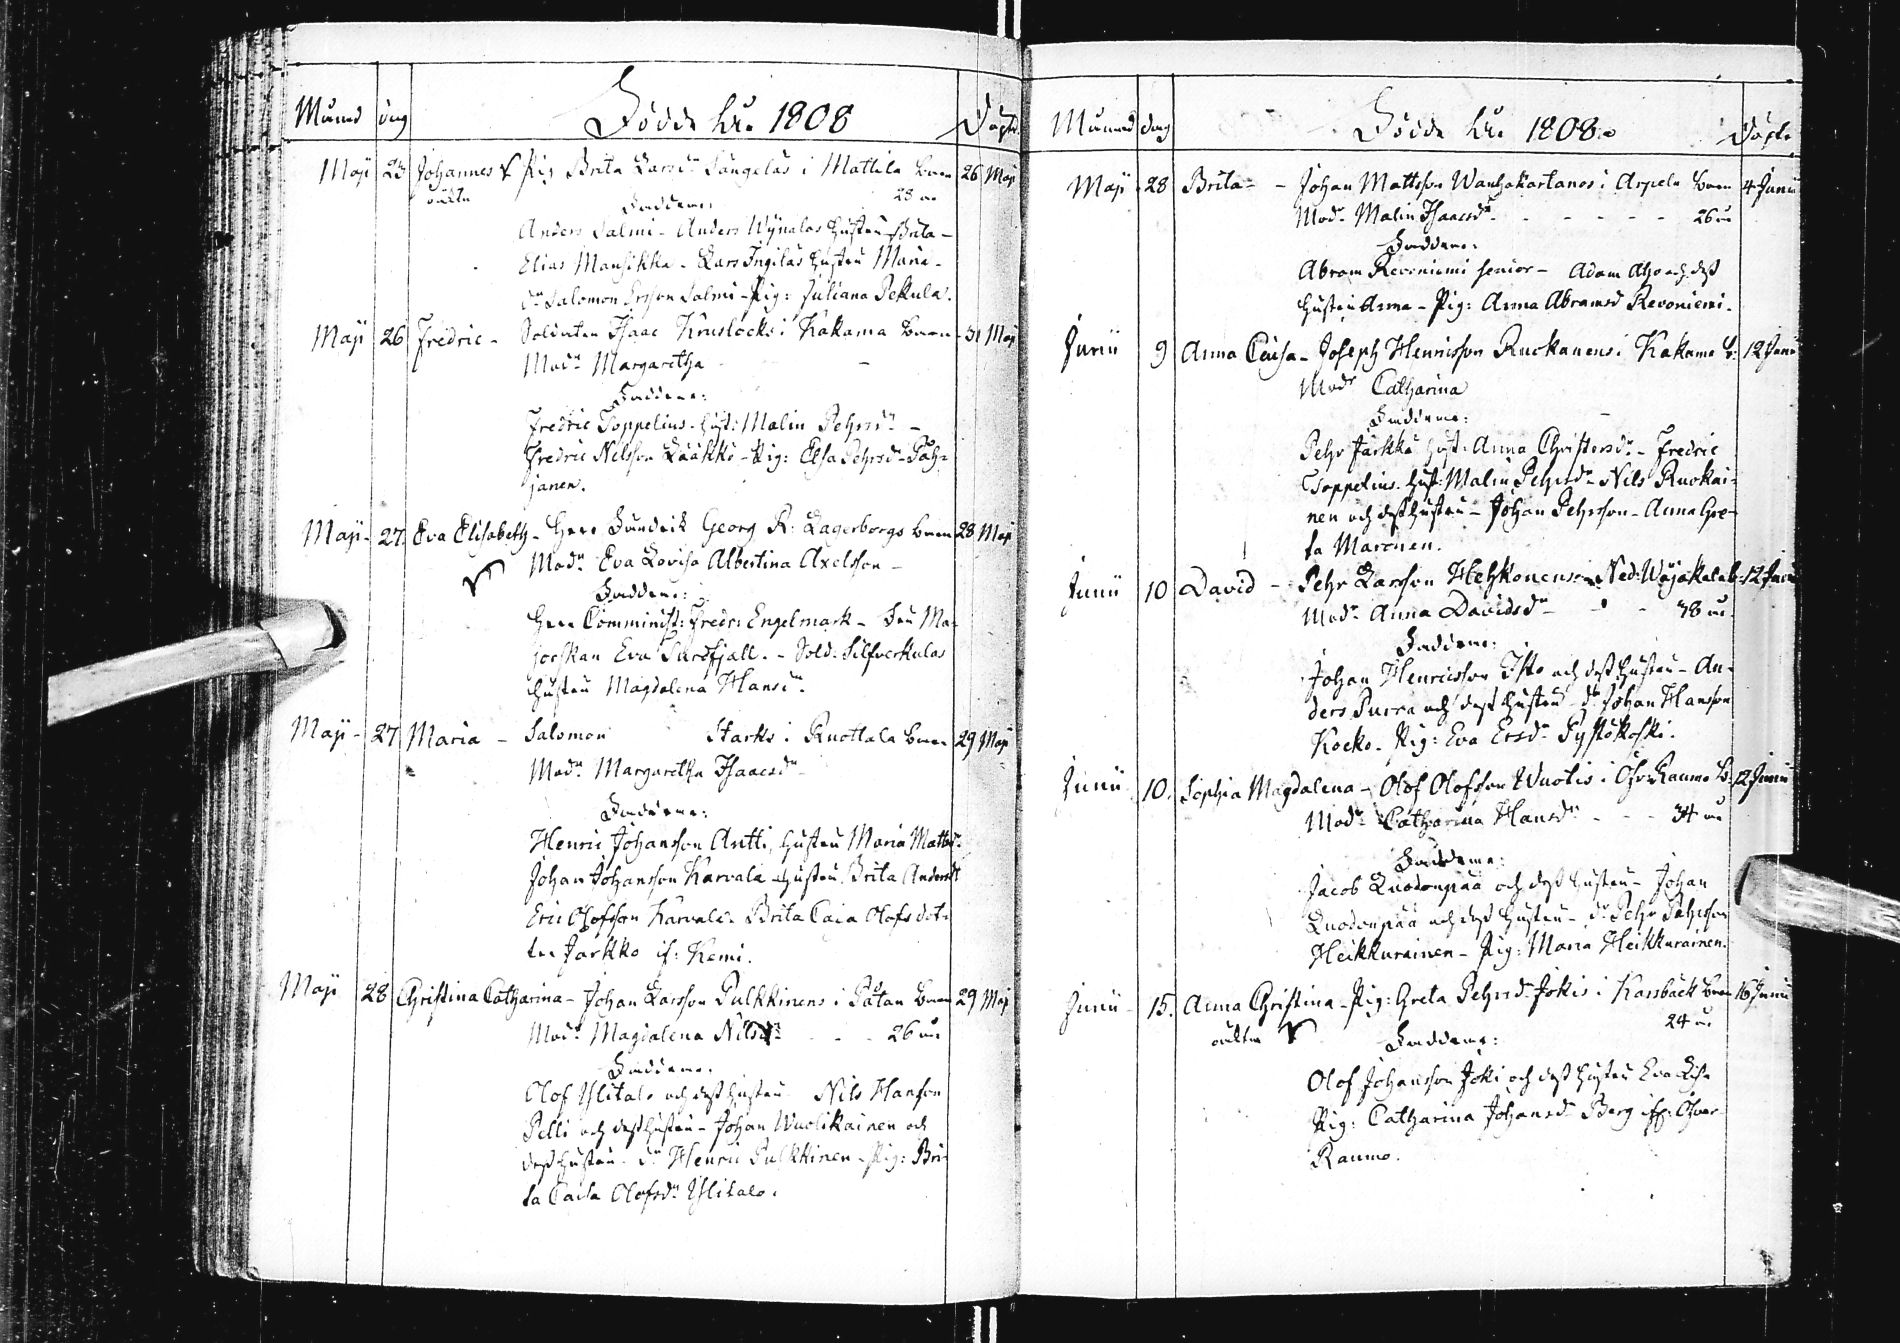 Månad dag Födde År. 1808 Döpte
Maji 23 Johannes Pig Brita Larsdr Langelas i Mattila barn 26 Maji
oäkta 28 år
Faddrar:
Anders Salmi - Anders Wynalas hustru Brita -
Elias Mansikka - Lars Ingilas hustru Maria -
Dr Salomon Ersson Salmi - Pig: Juliana Pekula.
Maji 26 Fredric - Soldaten Isaac Kruslocks i Kakama barn - 31 Maji
Modr Margaretha
Faddrar:
Fredric Toppelius hust: Malin Pehrsdr -
Fredric Nilsson Lääkkö - Pig: Elsa Pehrsdr Päh-
janen.
Maji - 27 Eva Elisabeth - Herr Georg R: Lagerborgs barn 28 Maji
Modr Eva Lovisa Albertina Axelsson -
Faddrar:
Herr Comminist: Fredr: Engelmark - Fru Ma-
jorskan Eva - Sold: Silfverkulas
hustru Magdalena Hansdr.
Maji - 27 Maria - Salomon Starks i Ruottala barn 29 Maji
Modr Margaretha Isaacsdr
Faddrar:
Henric Johansson Antti, hustru Maria Mattsdr
Johan Johansson Karvala hustru Brita Andersdr
Eric Olofsson Karvala - Brita Caisa Olofs dot-
ter Jarkko if: Kemi.
Maji 28 Christina Catharina - Johan Larsson Pulkkinens i Påtan barn 29 Maji
Modr Magdalena Nilsdr - - - 26 år
Faddrar:
Olof Ylitalo och dess hustru Nils Hansson
Pelli och dess hustru - Johan Wuolikainen och
dess hustru - dr Henric Pulkkinen - Pig: Bri-
ta Caisa Olofsdr Ylitalo.
Månad dag Födde År. 1808. Döpte
Maji 28 Brita - - Johan Mattsson Wanhakartanos i Arpela barn 4 Junii
Modr Malin Isaacsdr - - - - - - 26 år
Faddrar:
Abram Revoniemi senior - Adam Aho och dess
hustru Anna - Pig: Anna Abramsdr Revoniemi.
Junii 9 Anna Caisa - Joseph Henricsson Ruokanens i Kakama b: 12 Junii
Modr Catharina
Faddrar:
Pehr Jarkko hust: Anna Christersdr - Fredric
Toppelius hust: Malin Pehrsdr - Nils Ruokai-
nen och dess hustru - Johan Pehrsson - Anna Gre-
ta Maronen.
Junii 10 David - Pehr Larsson Hehkonens Ned: Wojakala b: 12 Junii
Modr Anna Davidsdr - - - 38 år
Faddrar:
Johan Henricsson Isto och dess hustru - An-
ders Purra och dess hustru - dr Johan Hansson
Kocko - Pig: Eva Ersdr Pystökoski.
Junii 10. Sophia Magdalena - Olof Olofsson Wuotis i Öfv: Raumo b. 12 Junii
Modr Catharina Hansdr - - - 34 år
Faddrar:
Jacob Luodonpää och dess hustru - Johan
Luodonpää och dess hustru - dr Pehr Pehrsson
Heikkurainen - Pig: Maria Heikkurainen.
Junii 15. Anna Christina - Pig: Greta Pehrsdr Jokis i Karsbäck barn 16 Junii
oäkta 24 år
Faddrar:
Olof Johansson Joki och dess hustru Eva Lisa
Pig: Catharina Johansdr Berg if: Öfver
Raumo.